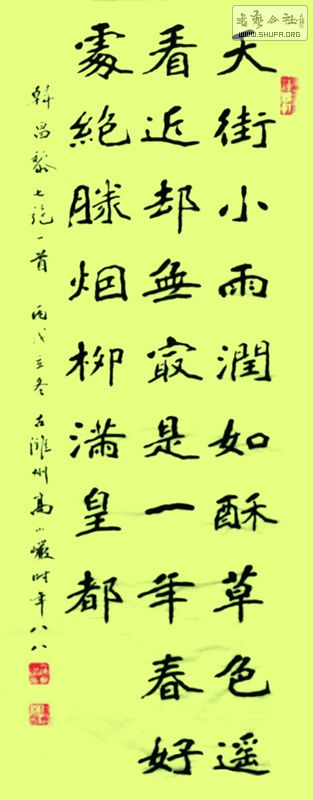 天街小雨潤如酥草色遥
看近却無冣是一年春好
處絶勝烟柳滿皇都
韓昌黎七绝一首 丙戌立冬 古濰州高小巖时年八八
书艺公社
WWW.SHUFA.ORG